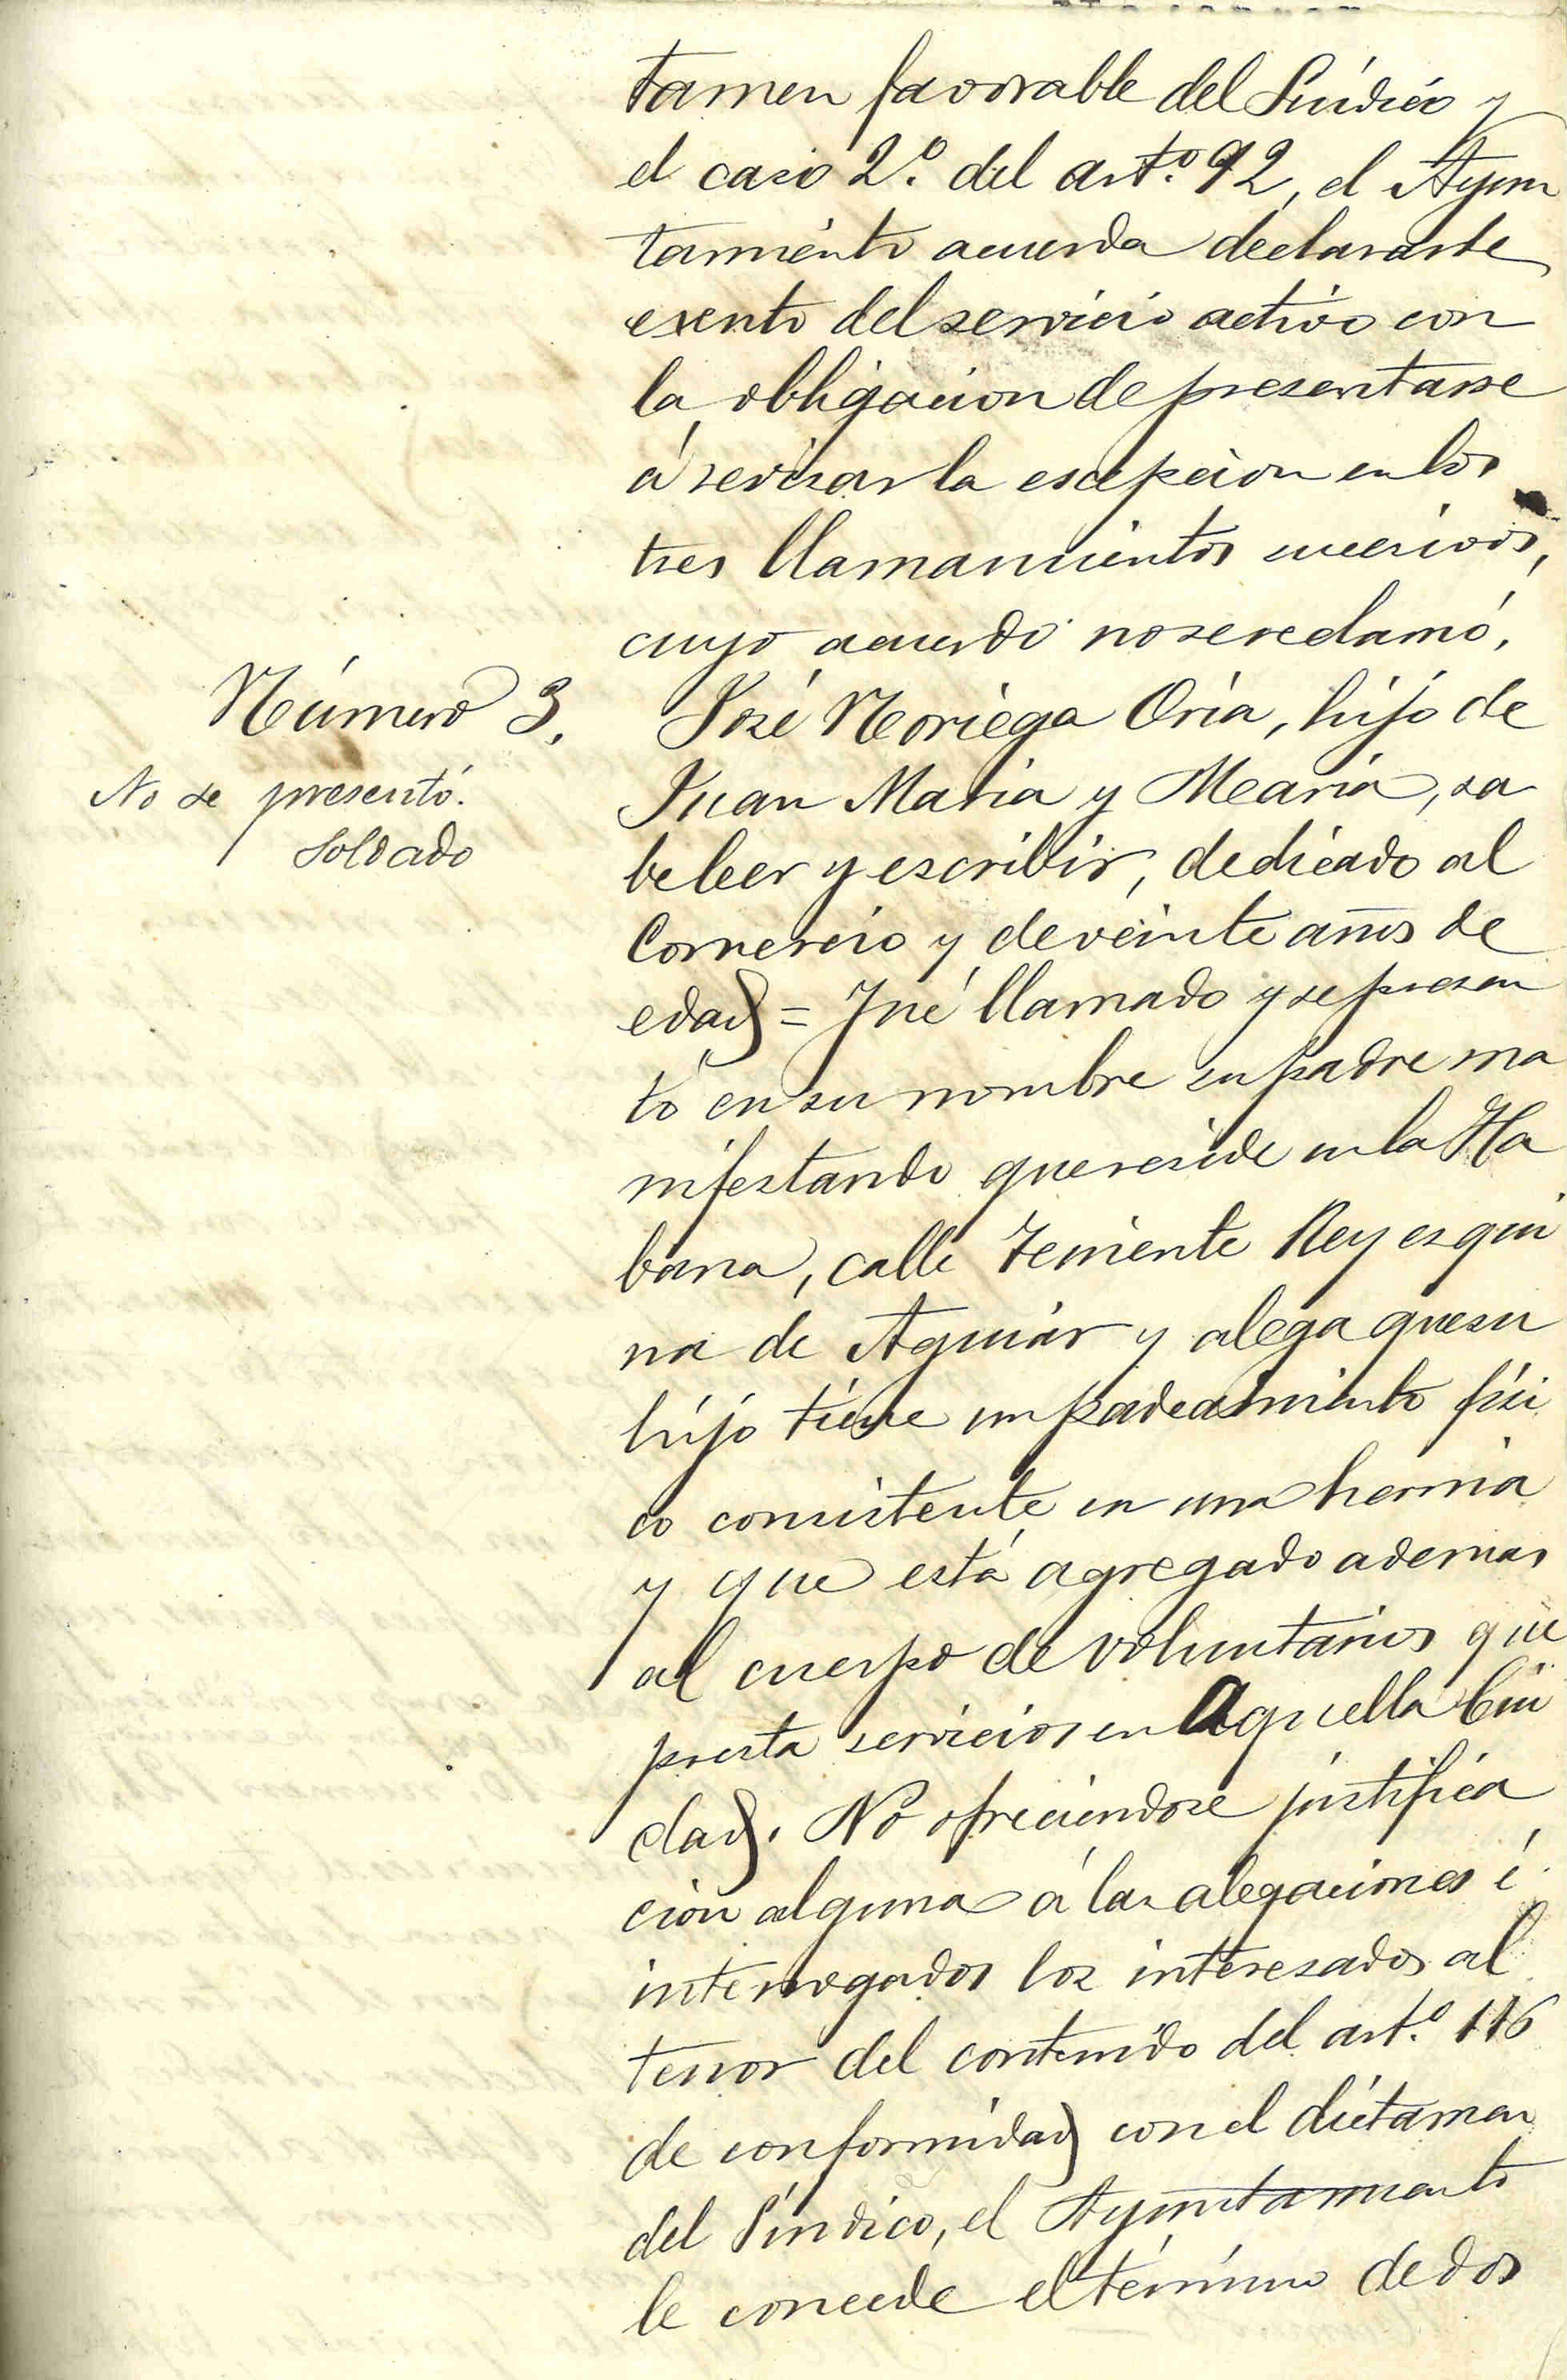 tamen favorable del Síndico y
el caso 2.º del art.º 92, el Ayun
tamiento acuerda declararle
exento del servicio activo con
la obligacion de presentarse
á revisar la escepcion en los
tres llamamientos sucesivos,
cuyo acuerdo no se reclamó.
Número 3.
No se presentó.
Soldado
José Noriega Oria, hijo de
Juan Maria y Maria, sa
be leer y escribir, dedicado al
Comercio y de veinte años de
edad = Fué llamado y se presen
tó en su nombre su padre ma
nifestando que reside en la Ha
bana, calle Teniente Rey esqui
na de Aguiar y alega que su
hijo tiene un padecimiento físi
co consistente en una hernia
y que está agregado ademas
al cuerpo de voluntarios que
presta servicios en aquella Ciu
dad. No ofreciendose justifica
cion alguna á las alegaciones é
interrogados los interesados al
tenor del contenido del art.º 116
de conformidad con el dictamen
del Síndico, el Ayuntamiento
le concede el término de dos